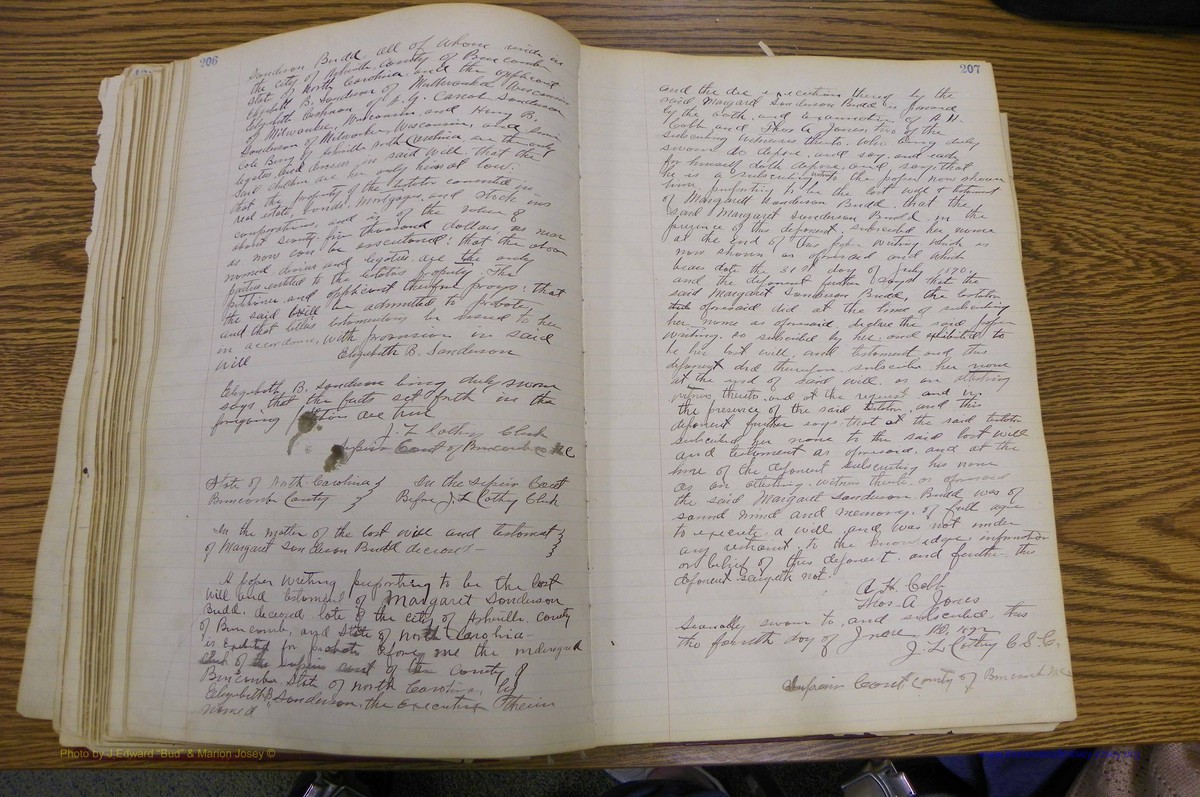 206
Sanderson Budd, all of whom reside in
the city of Asheville, County of Buncombe
State of North Carolina and the applicant
Elizabeth B. Sanderson of Milwaukee Wisconsin
Elizabeth
of Milwaukee, Wisconsin, and Henry B.
Sanderson of Milwaukee, Wisconsin, and
Cole Berry of Asheville North Carolina are the only
legatees and devisees in said will. that the
said children are her only heirs at law.
that the property of the testator consisted in
real estate, bonds, mortgages, and stock in
corporations, and is of the value of
about seventy-five thousand dollars, as near
as now can be ascertained; that the above
named devisees and legatees are the only
parties entitled to the testators property. The
petitioner and applicant therefore prays: that
the said will be admitted to probate,
and that letters testamentary be issued to her
in accordance, with provision in said
Will Elizabeth B. Sanderson
Elizabeth, B. Sanderson being duly sworn
says, that the facts set forth in the
forgoing petition are true
J. L Cathey Clerk
Superior Court of Buncombe Co N.C
State of North Carolina } In the superior Court
Buncombe County } Before J. L Cathey Clerk
In the matter of the last will and testament }
of Margaret Sanderson Budd deceased - }
A paper writing purporting to be the last
will and testament of Margaret Sanderson
Budd. deceased late of the city of Asheville. County
of Buncombe, and State of North Carolina -
is exhibited for probate before me the undersigned
clerk of the superior court of the County of
Buncombe State of North Carolina, by
Elizabeth B. Sanderson, the executrix therein
named
207
and the due execution thereof by the
said Margaret Sanderson Budd is proved
by the oath and examination of A. H.
Cobb and Thos A Jones, two of the
subscribing witnesses thereto. Who being duly
sworn do depose and say, and each
for himself doth depose, and say, that
he is a subscribing witness to the paper now shown
him, purporting to be the last will & testament
of Margarett Sanderson Budd. that the
said Margaret Sanderson Budd, in the
presence of this deponent, subscribed her name
at the end of this paper writing which is
now shown as aforesaid and which
bears date the 31st day of July 1890.
and the deponent further says that the
said Margaret Sanderson Budd, the testator
aforesaid did at the time of subscribing
her name as aforesaid, declare the said paper
writing. so subscribed by her, and exhibited to
be her last will, and testament and this
deponent did therefore subscribe her name
at the end of said will, as an attesting
witness thereto. and at the request and in
the presence of the said testator. and this
deponent further says that at the said testator
subscribed her name to the said last will
and testament as aforesaid. and at the
time of the deponent subscribing his name
as an attesting witness thereto. as aforesaid
the said Margaret Sanderson Budd was of
sound mind and memory. of full age
to execute a will, and was not under
any restraint, to the knowledge, information
or belief of this deponent. and further this
deponent sayeth not.
A. H. Cobb
Thos. A Jones
Severally sworn to, and subscribed, this
the fourth day of
J. L Cathey C. S. C.
Superior Court County of Buncombe N.C.
Photo by J Edward "Bud" & Marion Josey ©